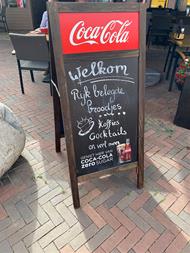 Coca-Cola
Welkom
Rijk belegde
broodjes
Koffies
Cocktails
en veel meer
GENIET HIER VAN
COCA-COLA
ZERO SUGAR